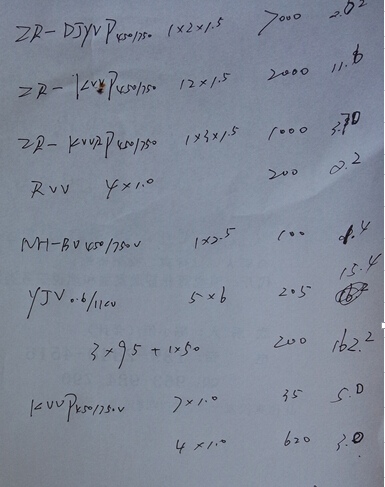 ZR-DJYVP450/750 1x2x1.5 7000 2.02
ZR-KVVP450/750 12x1.5 2000 11.8
ZR-KVVRP450/750 1x3x1.5 1000
RVV 4x1.0 200 2.2
NH-BV450/750V 1x2.5 100
15.4
YJV0.6/1KV 5x6 205
3x95+1x50 200 162.2
KVVP450/750V 7x1.0 35 5.0
4x1.0 620 3.0